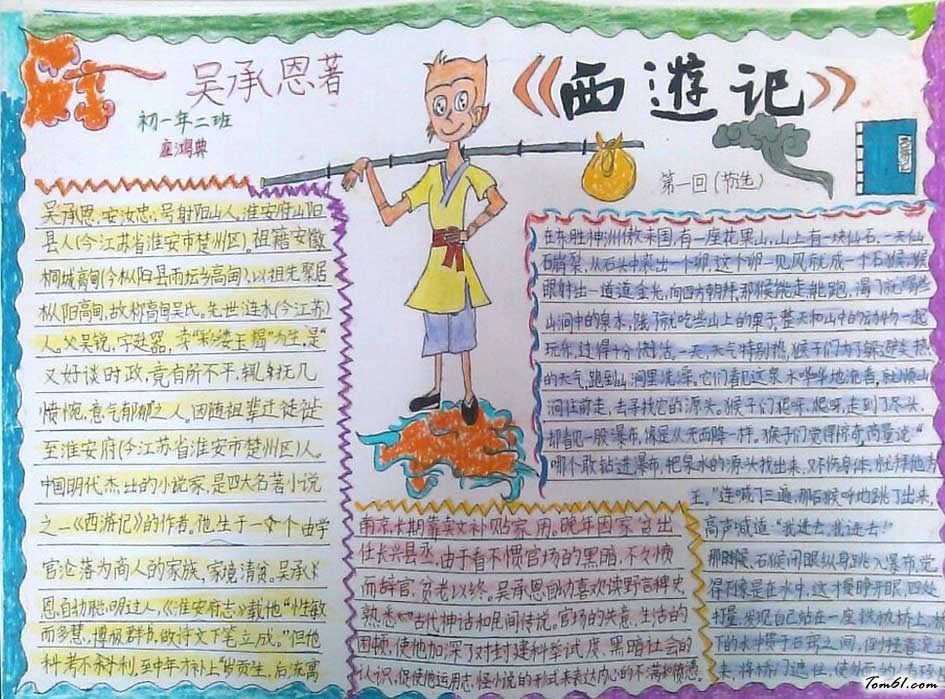 吴承恩著
初一年二班
《西遊记》
第一回(节选)
吴承恩,字汝忠,号射阳山人,淮安府山阳
县人(今江苏省淮安市楚州区)。祖籍安徽
桐城高甸(今枞阳县雨坛乡高甸),以祖先聚居
枞阳高甸,故称高甸吴氏。先世涟水(今江苏)
人。父吴锐,字廷器,卖“彩缕文縠”为生,是“
又好谈时政,竟有所不平,辄抚几
愤惋,意气郁郁”之人。因随祖辈迁徙
至淮安府(今江苏省淮安市楚州区)人。
中国明代杰出的小说家,是四大名著小说
之一《西游记》的作者。他生于一个由学
官沦落为商人的家族,家境清贫。吴承
恩自幼聪明过人,《淮安府志》载他“性敏
而多慧,博极群书,做诗文下笔立成。”但他
科考不利,至中年才补上“岁贡生”,后流寓
南京长期靠卖文补贴家用。晚年因家贫出
任长兴县丞,由于看不惯官场的黑暗,不久愤
而辞官,贫老以终。吴承恩自幼喜欢读野言稗史,
熟悉古代神话和民间传说。官场的失意,生活的
困顿,使他加深了对封建科举制度、黑暗社会的
认识,促使他运用志怪小说的形式来表达内心的不满和愤懑。
在东胜神洲傲来国,有一座花果山,山上有一块仙石,一天仙
石崩裂,从石头中滚出一个卵,这个卵一见风就成一个石猴,猴
眼射出一道道金光,向四方朝拜。那猴能走、能跑,渴了就喝些
山涧中的泉水,饿了就吃些山上的果子,整天和山中的动物一起
玩乐,过得十分快活。一天,天气特别热,猴子们为了躲避炎热
的天气,跑到山涧里洗澡。它们看见这泉水哗哗地流着,就顺
涧往前走,去寻找它的源头。猴子们爬呀、爬呀,走到了尽头,
却看见一股瀑布,像是从天而降一样。猴子们觉得惊奇,商量说:“
哪个敢钻进瀑布,把泉水的源头找出来,又不伤身体,就拜他为
王。”连喊了三遍,那石猴呼地跳了出来,
高声喊道:“我进去,我进去!”
那石猴闭眼纵身跳入瀑布,觉
得不像是在水中,这才睁开眼,四处
打量,发现自己站在一座铁板桥上,桥
下的水冲贯于石窍之间,倒挂着流出
来,将桥门遮住,使外面的人看不
Tom61.com